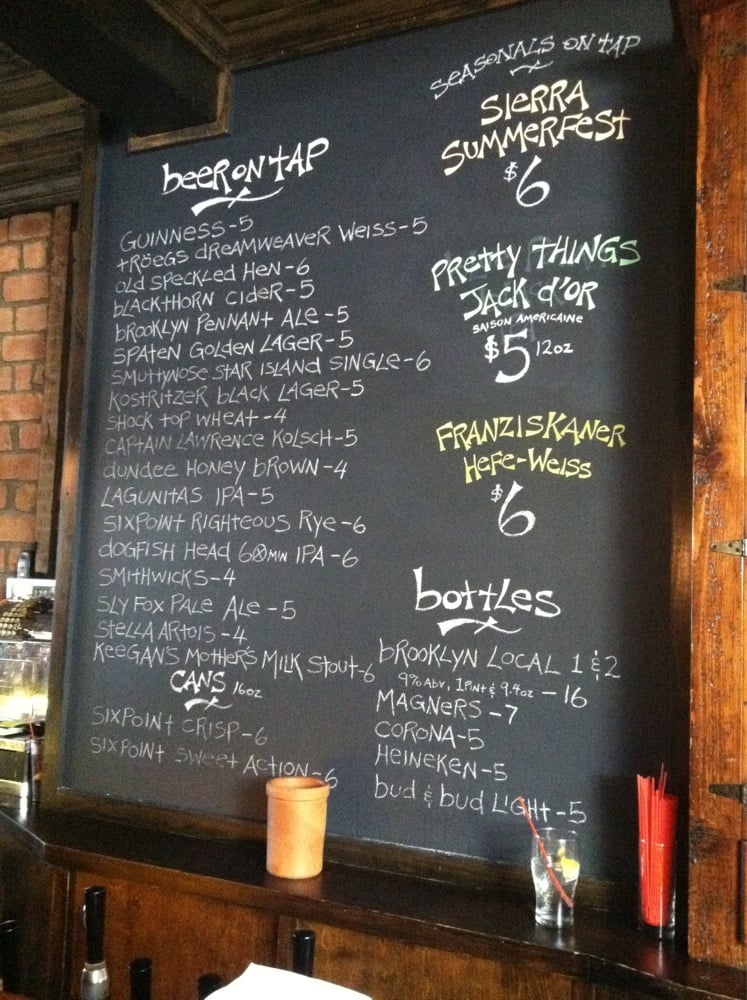 beer on tap
Guinness-5
tröegs dreamweaver Weiss-5
old speckled Hen-6
blackthorn cider-5
brooklyn Pennant Ale-5
Spaten Golden Lager-5
Smuttynose Star Island Single-6
Kostritzer black Lager-5
Shock top Wheat-4
Captain Lawrence Kolsch-5
dundee Honey brown-4
Lagunitas IPA-5
Sixpoint Righteous Rye-6
dogfish Head 60min IPA-6
Smithwicks-4
Sly Fox Pale Ale-5
Stella Artois-4
Keegan's Mother's Milk Stout-6
Cans 16oz
Sixpoint Crisp-6
Sixpoint Sweet Action-6
Seasonals on tap
Sierra
Summerfest
$6
Pretty Things
Jack d'or
Saison Americaine
$5 12oz
Franziskaner
Hefe-Weiss
$6
bottles
brooklyn Local 1 & 2
9% ABV, 1 Pint & 9.4oz - 16
Magners-7
Corona-5
Heineken-5
bud & bud Light-5